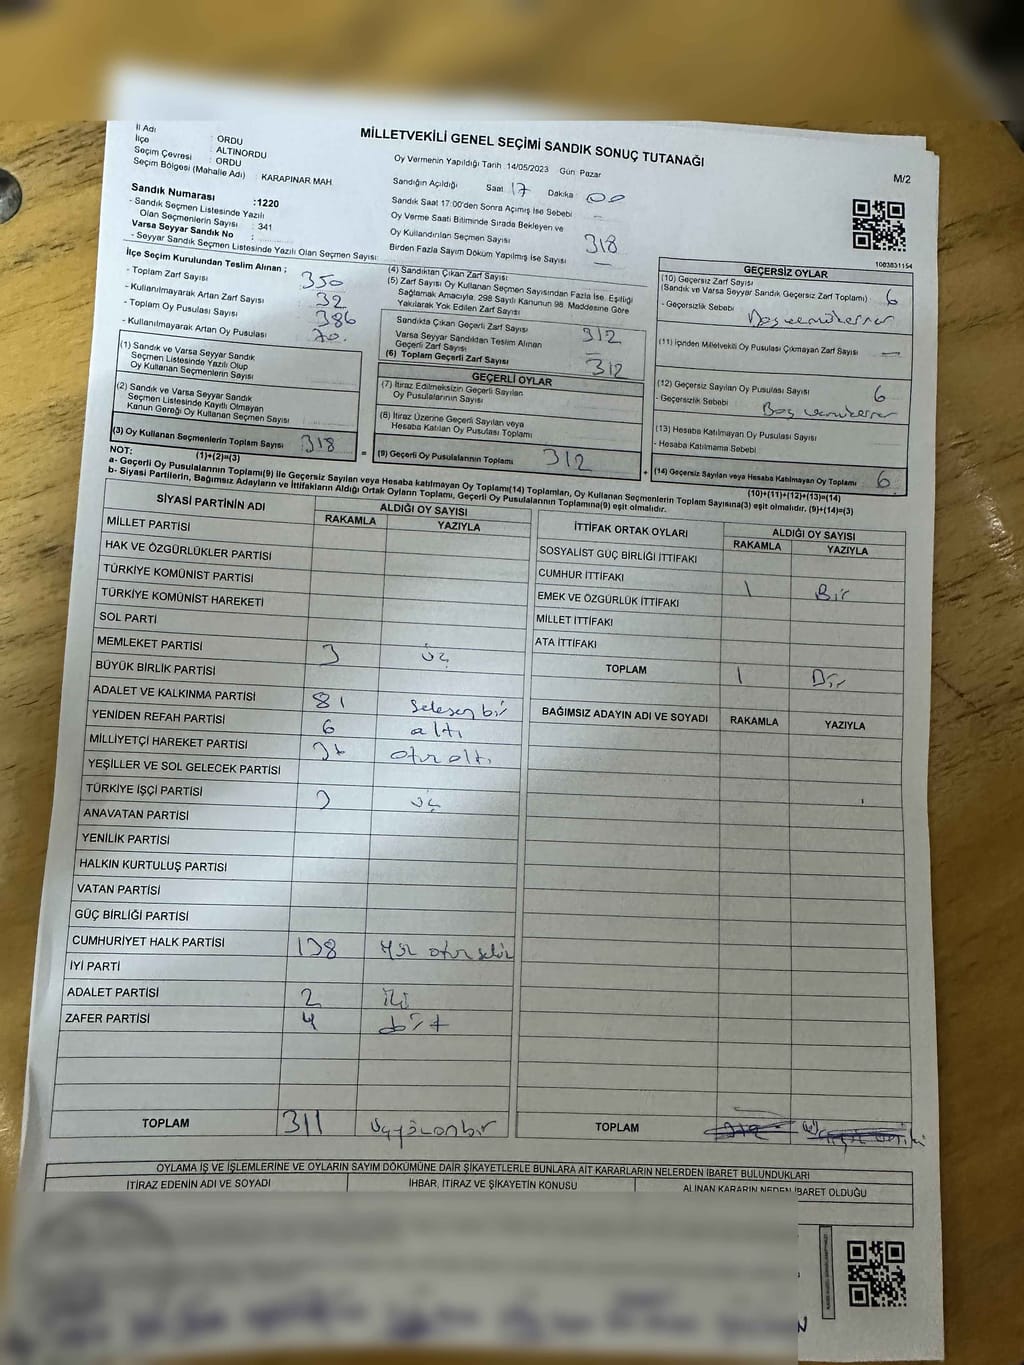 MİLLETVEKİLİ GENEL SEÇİMİ SANDIK SONUÇ TUTANAĞI
M/2
İl Adı : ORDU
İlçe : ALTINORDU
Seçim Çevresi : ORDU
Seçim Bölgesi (Mahalle Adı) : KARAPINAR MAH.
Sandık Numarası :1220
- Sandık Seçmen Listesinde Yazılı
Olan Seçmenlerin Sayısı : 341
Varsa Seyyar Sandık No :
- Seyyar Sandık Seçmen Listesinde Yazılı Olan Seçmen Sayısı:
Oy Vermenin Yapıldığı Tarih :14/05/2023 Gün Pazar
Sandığın Açıldığı Saat 17 Dakika 00
Sandık Saat 17:00'den Sonra Açımış İse Sebebi
Oy Verme Saati Bitiminde Sırada Bekleyen ve
Oy Kullandırılan Seçmen Sayısı 318
Birden Fazla Sayım Döküm Yapılmış İse Sayısı
1083831154
İlçe Seçim Kurulundan Teslim Alınan ;
- Toplam Zarf Sayısı 350
- Kullanılmayarak Artan Zarf Sayısı 32
- Toplam Oy Pusulası Sayısı 386
- Kullanılmayarak Artan Oy Pusulası
(1) Sandık ve Varsa Seyyar Sandık
Seçmen Listesinde Yazılı Olup
Oy Kullanan Seçmenlerin Sayısı
(2) Sandık ve Varsa Seyyar Sandık
Seçmen Listesinde Kayıtlı Olmayan
Kanun Gereği Oy Kullanan Seçmen Sayısı
(3) Oy Kullanan Seçmenlerin Toplam Sayısı 318
(1)+(2)=(3)
(4) Sandıktan Çıkan Zarf Sayısı
(5) Zarf Sayısı Oy Kullanan Seçmen Sayısından Fazla İse, Eşitliği
Sağlamak Amacıyla, 298 Sayılı Kanunun 98. Maddesine Göre
Yakılarak Yok Edilen Zarf Sayısı
Sandıkta Çıkan Geçerli Zarf Sayısı 312
Varsa Seyyar Sandıktan Teslim Alınan
Geçerli Zarf Sayısı –
(6) Toplam Geçerli Zarf Sayısı 312
GEÇERLİ OYLAR
(7) İtiraz Edilmeksizin Geçerli Sayılan
Oy Pusulalarının Sayısı
(8) İtiraz Üzerine Geçerli Sayılan veya
Hesaba Katılan Oy Pusulası Toplamı
= (9) Geçerli Oy Pusulalarının Toplamı 312
GEÇERSİZ OYLAR
(10) Geçersiz Zarf Sayısı
(Sandık ve Varsa Seyyar Sandık Geçersiz Zarf Toplamı) 6
- Geçersizlik Sebebi Boş ve mükerrer
(11) İçinden Milletvekili Oy Pusulası Çıkmayan Zarf Sayısı —
(12) Geçersiz Sayılan Oy Pusulası Sayısı 6
- Geçersizlik Sebebi Boş ve mükerrer
(13) Hesaba Katılmayan Oy Pusulası Sayısı
- Hesaba Katılmama Sebebi
+ (14) Geçersiz Sayılan veya Hesaba Katılmayan Oy Toplamı 6
(10)+(11)+(12)+(13)=(14)
NOT:
a- Geçerli Oy Pusulalarının Toplamı(9) ile Geçersiz Sayılan veya Hesaba katılmayan Oy Toplamı(14) Toplamları, Oy Kullanan Seçmenlerin Toplam Sayısına(3) eşit olmalıdır. (9)+(14)=(3)
b- Siyasi Partilerin, Bağımsız Adayların ve İttifakların Aldığı Ortak Oyların Toplamı, Geçerli Oy Pusulalarının Toplamına(9) eşit olmalıdır.
SİYASİ PARTİNİN ADI ALDIĞI OY SAYISI
RAKAMLA YAZIYLA
MİLLET PARTİSİ
HAK VE ÖZGÜRLÜKLER PARTİSİ
TÜRKİYE KOMÜNİST PARTİSİ
TÜRKİYE KOMÜNİST HAREKETİ
SOL PARTİ
MEMLEKET PARTİSİ 3 üç
BÜYÜK BİRLİK PARTİSİ
ADALET VE KALKINMA PARTİSİ 81 seksen bir
YENİDEN REFAH PARTİSİ 6 altı
MİLLİYETÇİ HAREKET PARTİSİ otuz altı
YEŞİLLER VE SOL GELECEK PARTİSİ
TÜRKİYE İŞÇİ PARTİSİ 3 üç
ANAVATAN PARTİSİ
YENİLİK PARTİSİ
HALKIN KURTULUŞ PARTİSİ
VATAN PARTİSİ
GÜÇ BİRLİĞİ PARTİSİ
CUMHURİYET HALK PARTİSİ 138 otuz sekiz
İYİ PARTİ
ADALET PARTİSİ 2 iki
ZAFER PARTİSİ 4 dört
TOPLAM 311 üçyüzonbir
İTTİFAK ORTAK OYLARI ALDIĞI OY SAYISI
RAKAMLA YAZIYLA
SOSYALİST GÜÇ BİRLİĞİ İTTİFAKI
CUMHUR İTTİFAKI 1 Bir
EMEK VE ÖZGÜRLÜK İTTİFAKI
MİLLET İTTİFAKI
ATA İTTİFAKI
TOPLAM 1 Bir
BAĞIMSIZ ADAYIN ADI VE SOYADI RAKAMLA YAZIYLA
TOPLAM
OYLAMA İŞ VE İŞLEMLERİNE VE OYLARIN SAYIM DÖKÜMÜNE DAİR ŞİKAYETLERLE BUNLARA AİT KARARLARIN NELERDEN İBARET BULUNDUKLARI
İTİRAZ EDENİN ADI VE SOYADI İHBAR, İTİRAZ VE ŞİKAYETİN KONUSU ALINAN KARARIN NEDEN İBARET OLDUĞU